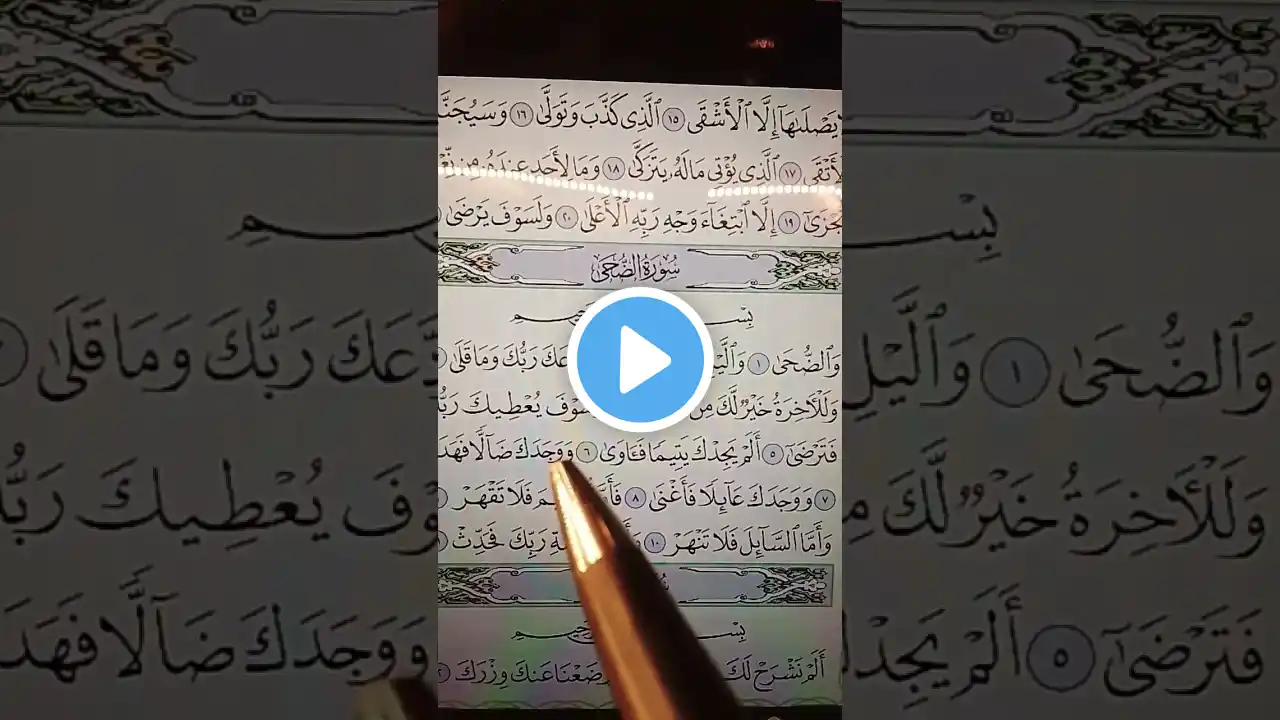 يَصْلَىٰهَآ إِلَّا ٱلْأَشْقَى ١٥ ٱلَّذِى كَذَّبَ وَتَوَلَّىٰ ١٦ وَسَيُجَنَّ
ٱلْأَتْقَى ١٧ ٱلَّذِى يُؤْتِى مَالَهُۥ يَتَزَكَّىٰ ١٨ وَمَا لِأَحَدٍ عِندَهُۥ مِن نِّعْ
تُجْزَىٰٓ ١٩ إِلَّا ٱبْتِغَآءَ وَجْهِ رَبِّهِ ٱلْأَعْلَىٰ ٢٠ وَلَسَوْفَ يَرْضَىٰ
سُورَةُ الضُّحَىٰ
بِسْ
وَٱلضُّحَىٰ ١ وَٱلَّيْلِ عَكَ رَبُّكَ وَمَا قَلَىٰ
وَلَلْءَاخِرَةُ خَيْرٌ لَّكَ مِنَ سَوْفَ يُعْطِيكَ رَبُّ
فَتَرْضَىٰٓ ٥ أَلَمْ يَجِدْكَ يَتِيمًا فَـَٔاوَىٰ ٦ وَوَجَدَكَ ضَآلًّا فَهَدَ
٧ وَوَجَدَكَ عَآئِلًا فَأَغْنَىٰ ٨ فَأَمَّا فَلَا تَقْهَرْ
وَأَمَّا ٱلسَّآئِلَ فَلَا تَنْهَرْ ١٠ رَبِّكَ فَحَدِّثْ
بِسْ
أَلَمْ نَشْرَحْ لَكَ وَضَعْنَا عَنكَ وِزْرَكَ